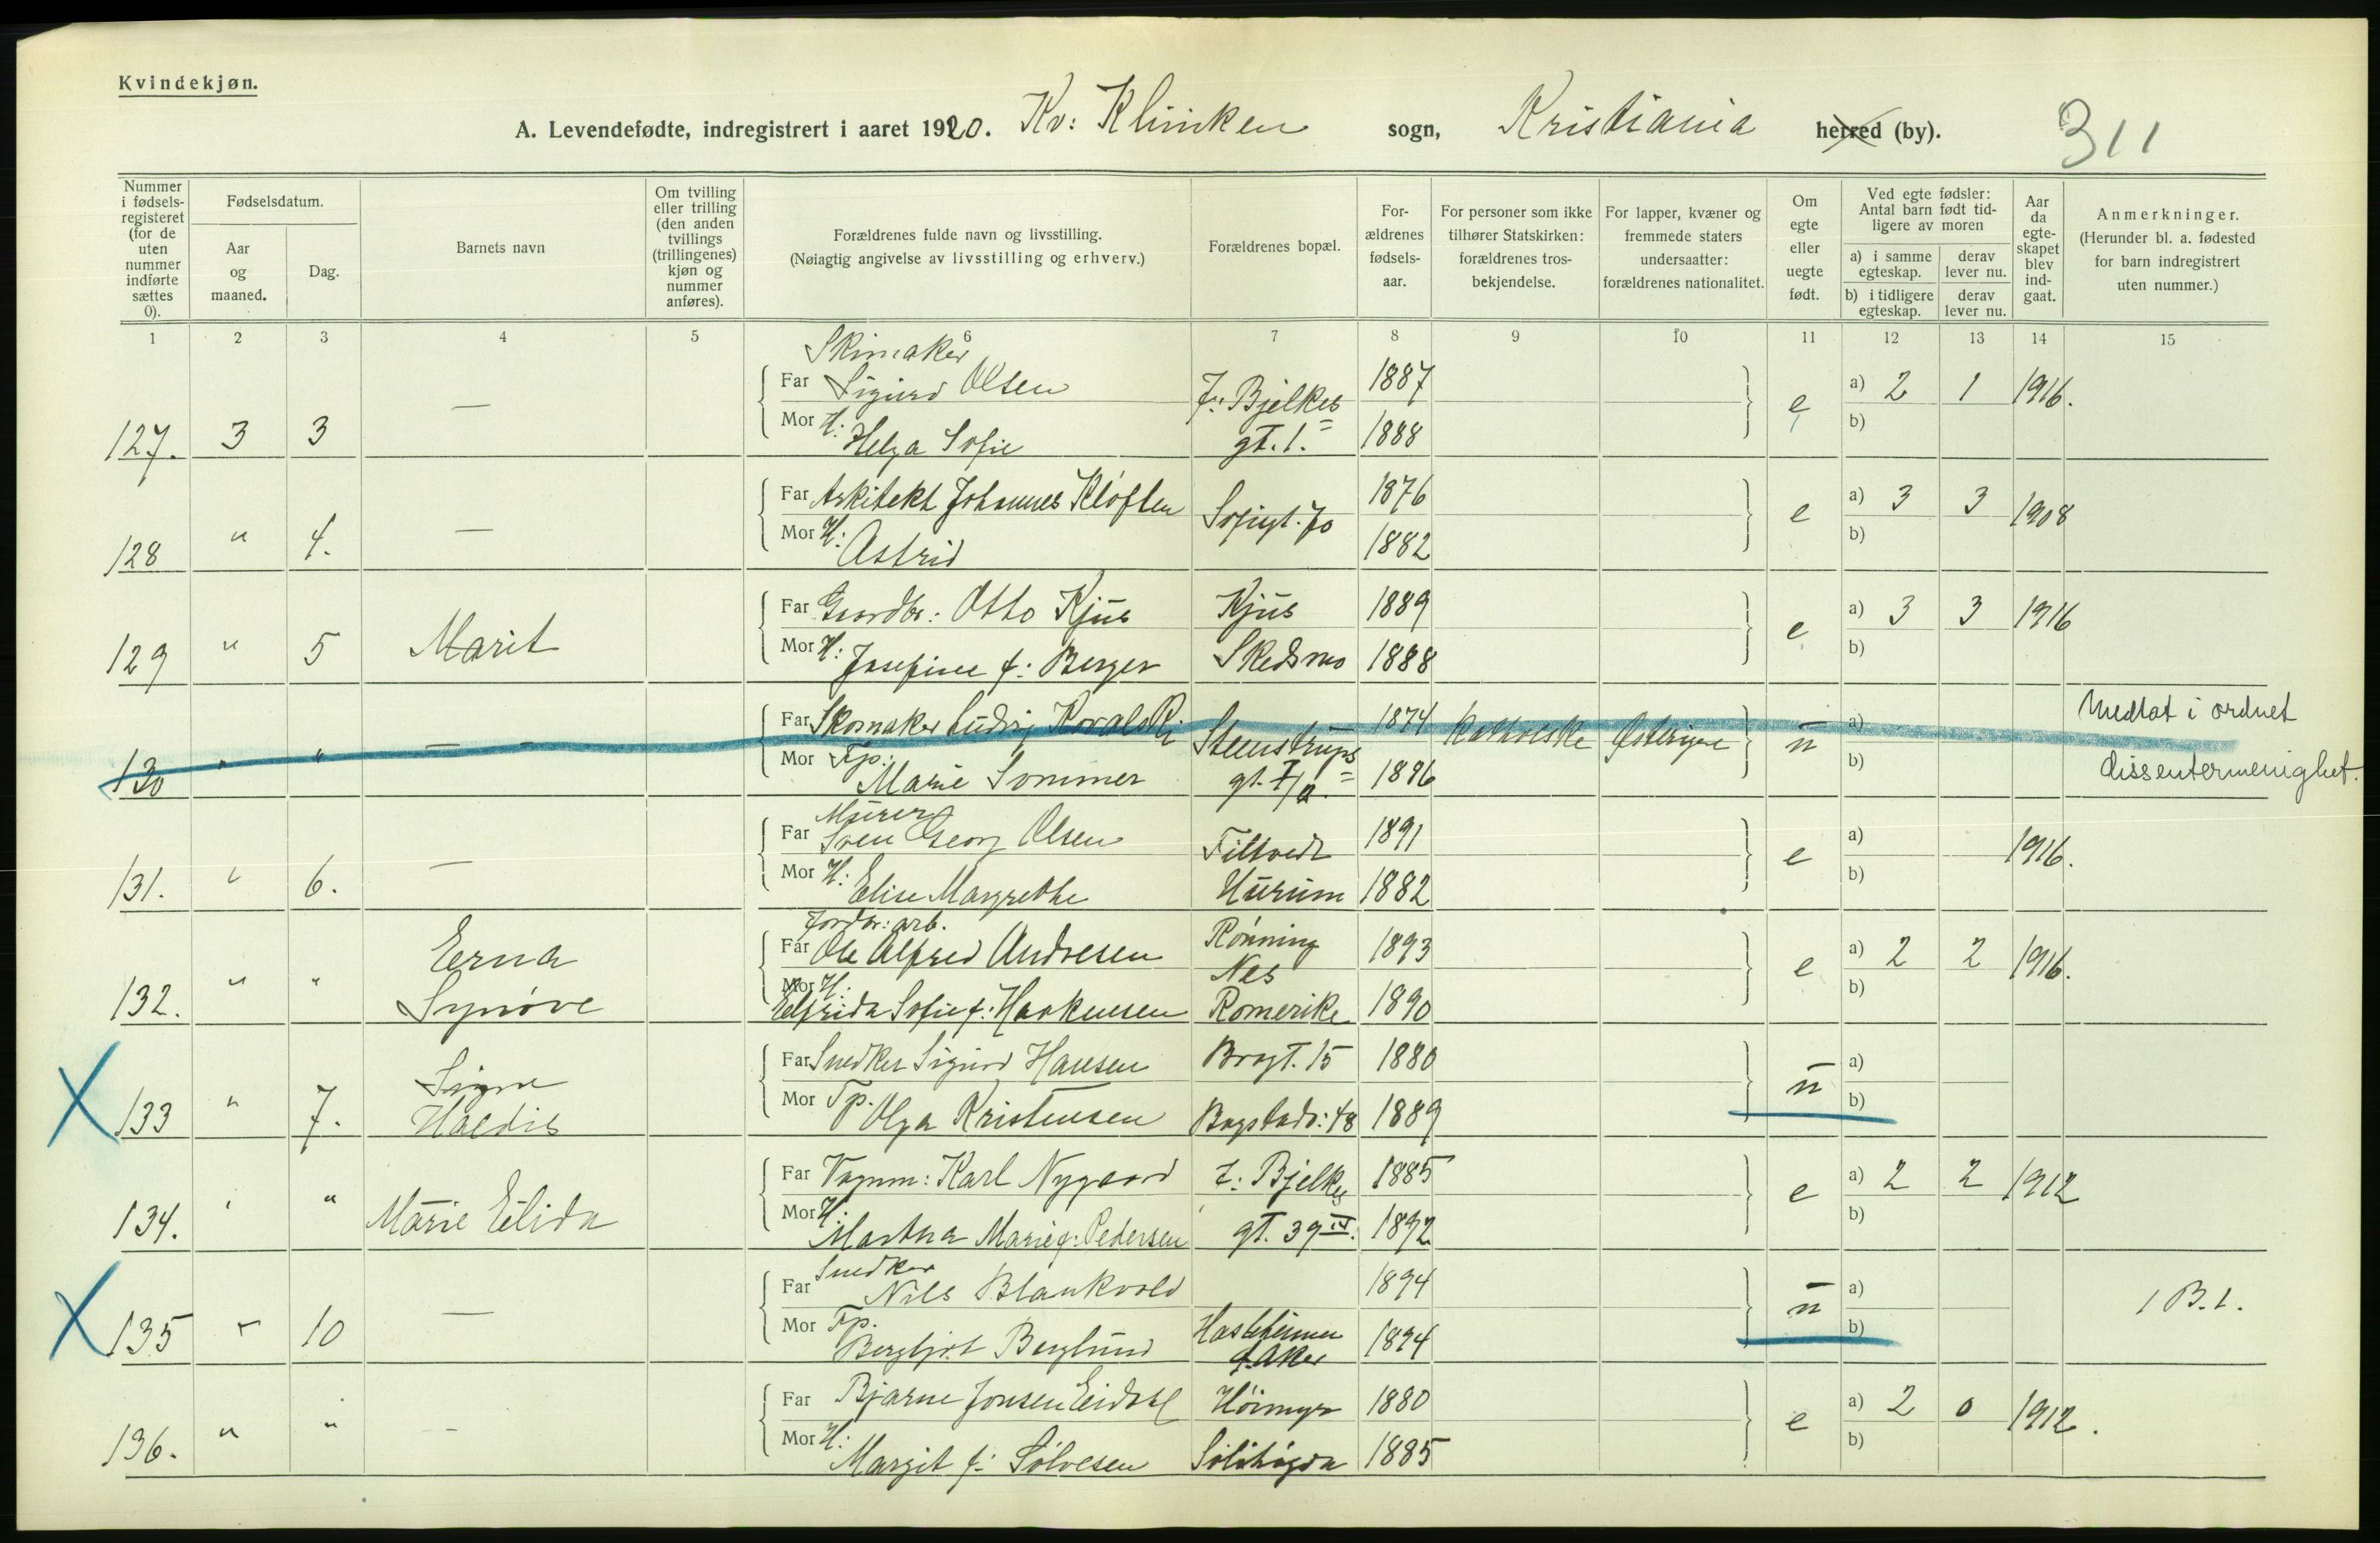 Kvindekjøn.
A. Levendefødte, indregistrert i aaret 1920. Kv: Kliniken sogn, Kristiania herred (by). 311
Nummer i fødsels-registeret (for de uten nummer indførte sættes 0).
Fødselsdatum.
Aar og maaned.
Dag.
Barnets navn
Om tvilling eller trilling (den anden tvillings (trillingenes) kjøn og nummer anføres).
Forældrenes fulde navn og livsstilling.
(Nøiagtig angivelse av livsstilling og erhverv.)
Forældrenes bopæl.
For-ældrenes fødsels-aar.
For personer som ikke tilhører Statskirken: forældrenes tros-bekjendelse.
For lapper, kvæner og fremmede staters undersaatter: forældrenes nationalitet.
Om egte eller uegte født.
Ved egte fødsler: Antal barn født tid-ligere av moren
a) i samme egteskap.
derav lever nu.
b) i tidligere egteskap.
derav lever nu.
Aar da egte-skapet blev ind-gaat.
Anmerkninger.
(Herunder bl. a. fødested for barn indregistrert uten nummer.)
1 2 3 4 5 6 7 8 9 10 11 12 13 14 15
Skimaker
Far Sigurd Olsen J: Bjelkes 1887 a) 2 1 1916.
127. 3 3 — Mor H: Helga Sofie gt. 1. 1888 e b)
Far Arkitekt Johannes Kløften Sofiegt. 70 1876 a) 3 3 1908
128 " 4. — Mor H: Astrid 1882 e b)
Far Gaardbr: Otto Kjus Kjus 1889 a) 3 3 1916
129 " 5 Marit Mor H: Josefine f: Berger Skedsmo 1888 e b)
Far Skomaker Ludvig Kovalski Steenstrups 1874 Katholske Østerrige u a) Medtat i ordnet
130 " " — Mor Tp. Marie Sommer gt. 1896 b) dissentermenighet.
Murer
Far Sven Georg Olsen Filtvedt 1891 a) 1916.
131. " 6. — Mor H: Elise Margrethe Hurum 1882 e b)
Jordbr: arb.
Far Ole Alfred Andresen Rønning 1893 a) 2 2 1916.
132. " " Erna Synøve Mor H: Elfrida Sofie f: Haakensen Nes Romerike 1890 e b)
Far Snedker Sigurd Hansen Brogt. 15 1880 a)
133 " 7. Signe Haldis Mor Tp. Olga Kristensen Bogstadv: 48 1889 u b)
Far Vognm: Karl Nygaard J: Bjelkes 1885 a) 2 2 1912
134. " " Marie Elida Mor H: Martha Marie f: Pedersen gt. 39 IV. 1892 e b)
Snedker
Far Nils Blankvold 1894 a) 1 B. 1.
135 " 10 — Mor Tp. Bergljot Berglund Aker 1894 u b)
Far Bjarne Jonsen Eidsel Høimyr 1880 a) 2 0 1912.
136. " " — Mor H: Margit f: Sølvesen Solihøgda 1885 e b)